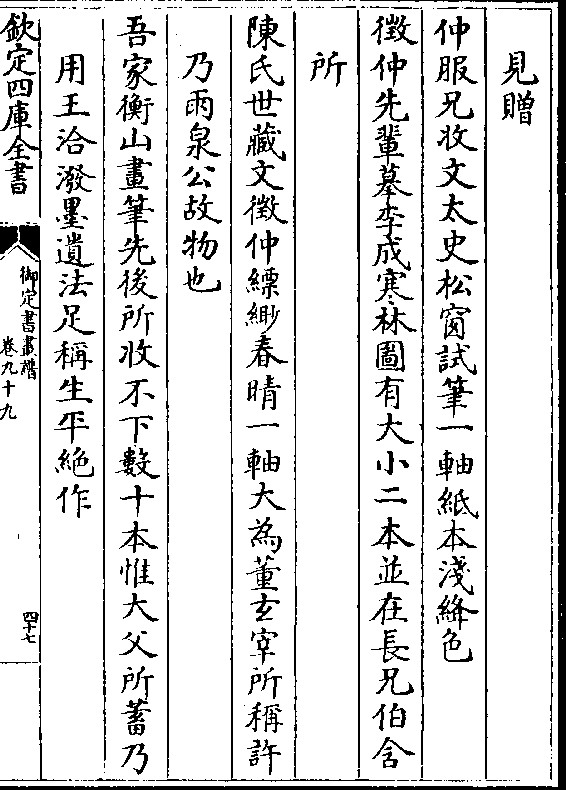 見贈
仲服兄收文太史松窗試筆一軸紙本淺絳色
徴仲先輩摹李成寒林圖有大小二本並在長兄伯含
所
陳氏世藏文徴仲縹緲春晴一軸大為董玄宰所稱許
乃雨泉公故物也
吾家衡山畫筆先後所收不下數十本惟大父所蓄乃
用王洽潑墨遺法足稱生平絶作
欽定四庫全書
御定書畫譜
卷九十九
四十七